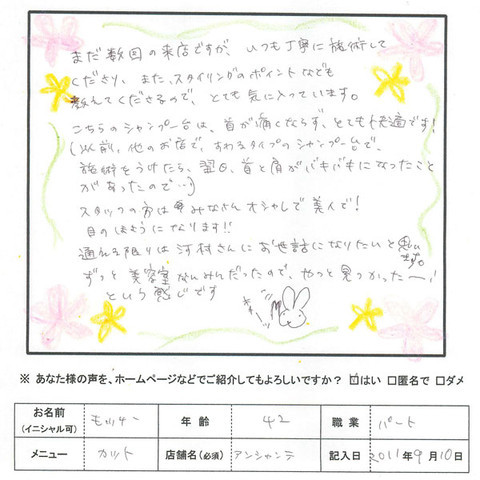 まだ数回の来店ですが、いつも丁寧に施術して
くださり、また、スタイリングのポイントなども
教えてくださるので、とても気に入っています。
こちらのシャンプー台は、首が痛くならず、とても快適です!
(以前、他のお店で、すわるタイプのシャンプー台で、
施術をうけたら、翌日、首と肩がバキバキになったこと
があったので…)
スタッフの方は みなさんオシャレで美人で!
目のほようになります!!
通える限りは河村さんにお世話になりたいと思います。
ずっと美容室なんみんだったので、やっと見つかったー!
という感じです
※ あなた様の声を、ホームページなどでご紹介してもよろしいですか? ☐はい ☐匿名で ☐ダメ
お名前 (イニシャル可) モッチー 年 齢 42 職 業 パート
メニュー カット 店舗名(必須) アンシャンテ 記入日 2011年9月10日